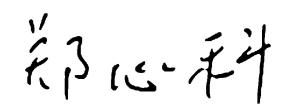 郑心科